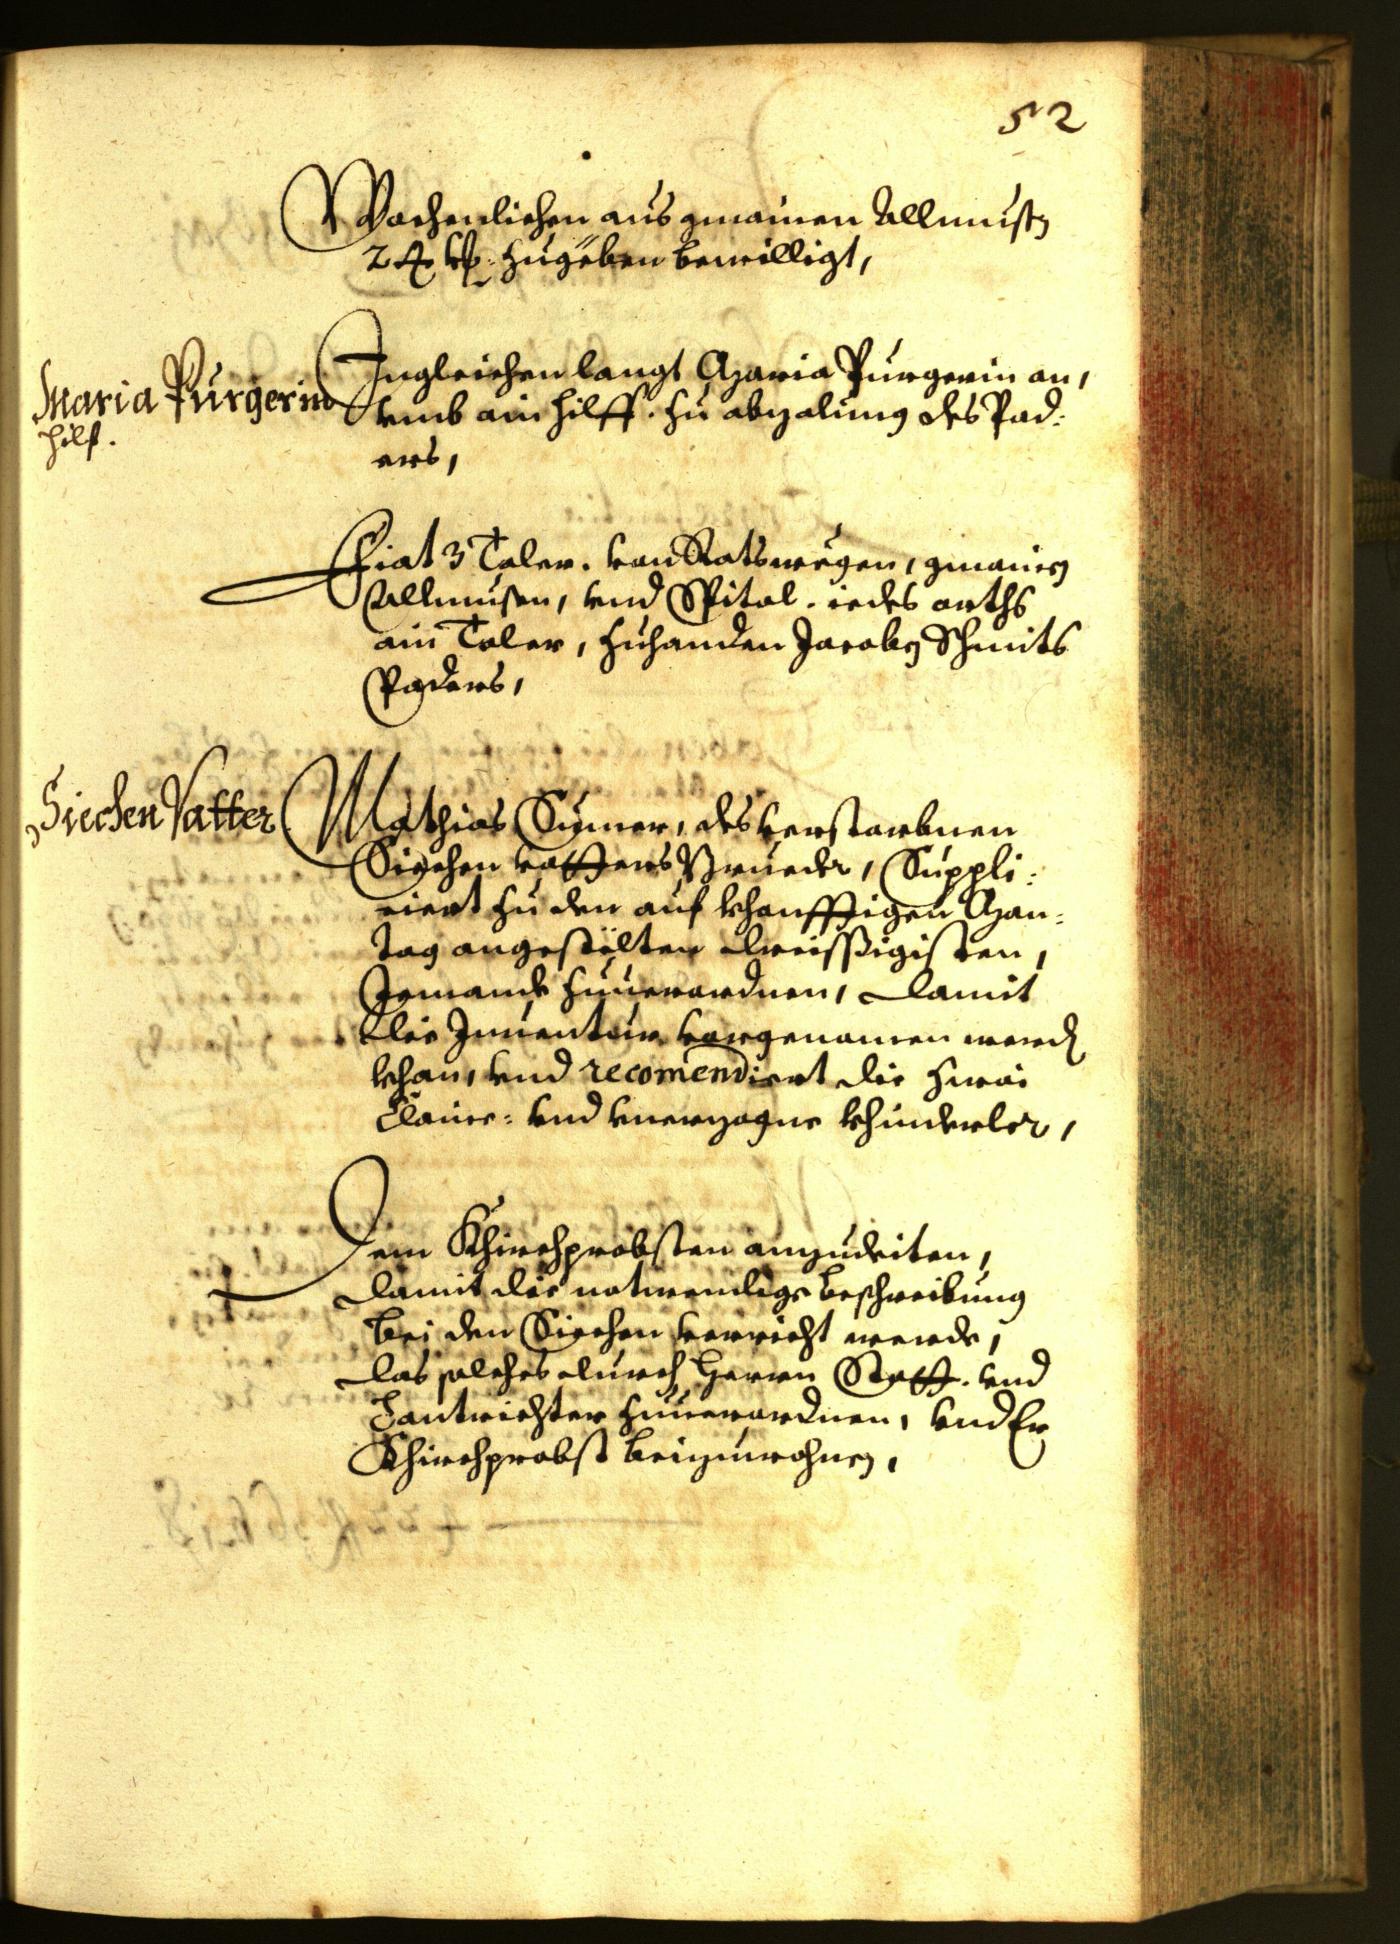 52
Wochenlichen aus gmainen Allmuesen
24 kr: zugeben bewilligt,
Maria Purgerin
hilf.
Ingleichen langt Maria Purgerin an,
vmb ain hilff. zu abzalung des Pad:
ers,
Fiat 3 Taler. von Ratswegen, gmainen
Allmusen, vnd Spital. iedes orths
ain Taler, zuhanden Jacoben Schmits
Paders,
Siechen Vatter
Mathias Sumer, des verstorbnen
Siechen vatters Brueder, Suppli:
ciert zu den auf khonfftigen Mon:
tag angestölten dreissigisten,
Jemandt zuuerordnen, damit
die Inuentur vorgenomen werden
khan, vnd recomendiert die zwai
Claine: vnd vnerzogne khinderler,
Dem Khirchprobsten anzudeiten,
damit die notwendige beschreibung
bei den Siechen verricht werde,
das solches durch Herrn Statt. vnd
Lantrichter zuuerordnen, vnd Er
Khirchprobst beizuwohnen,